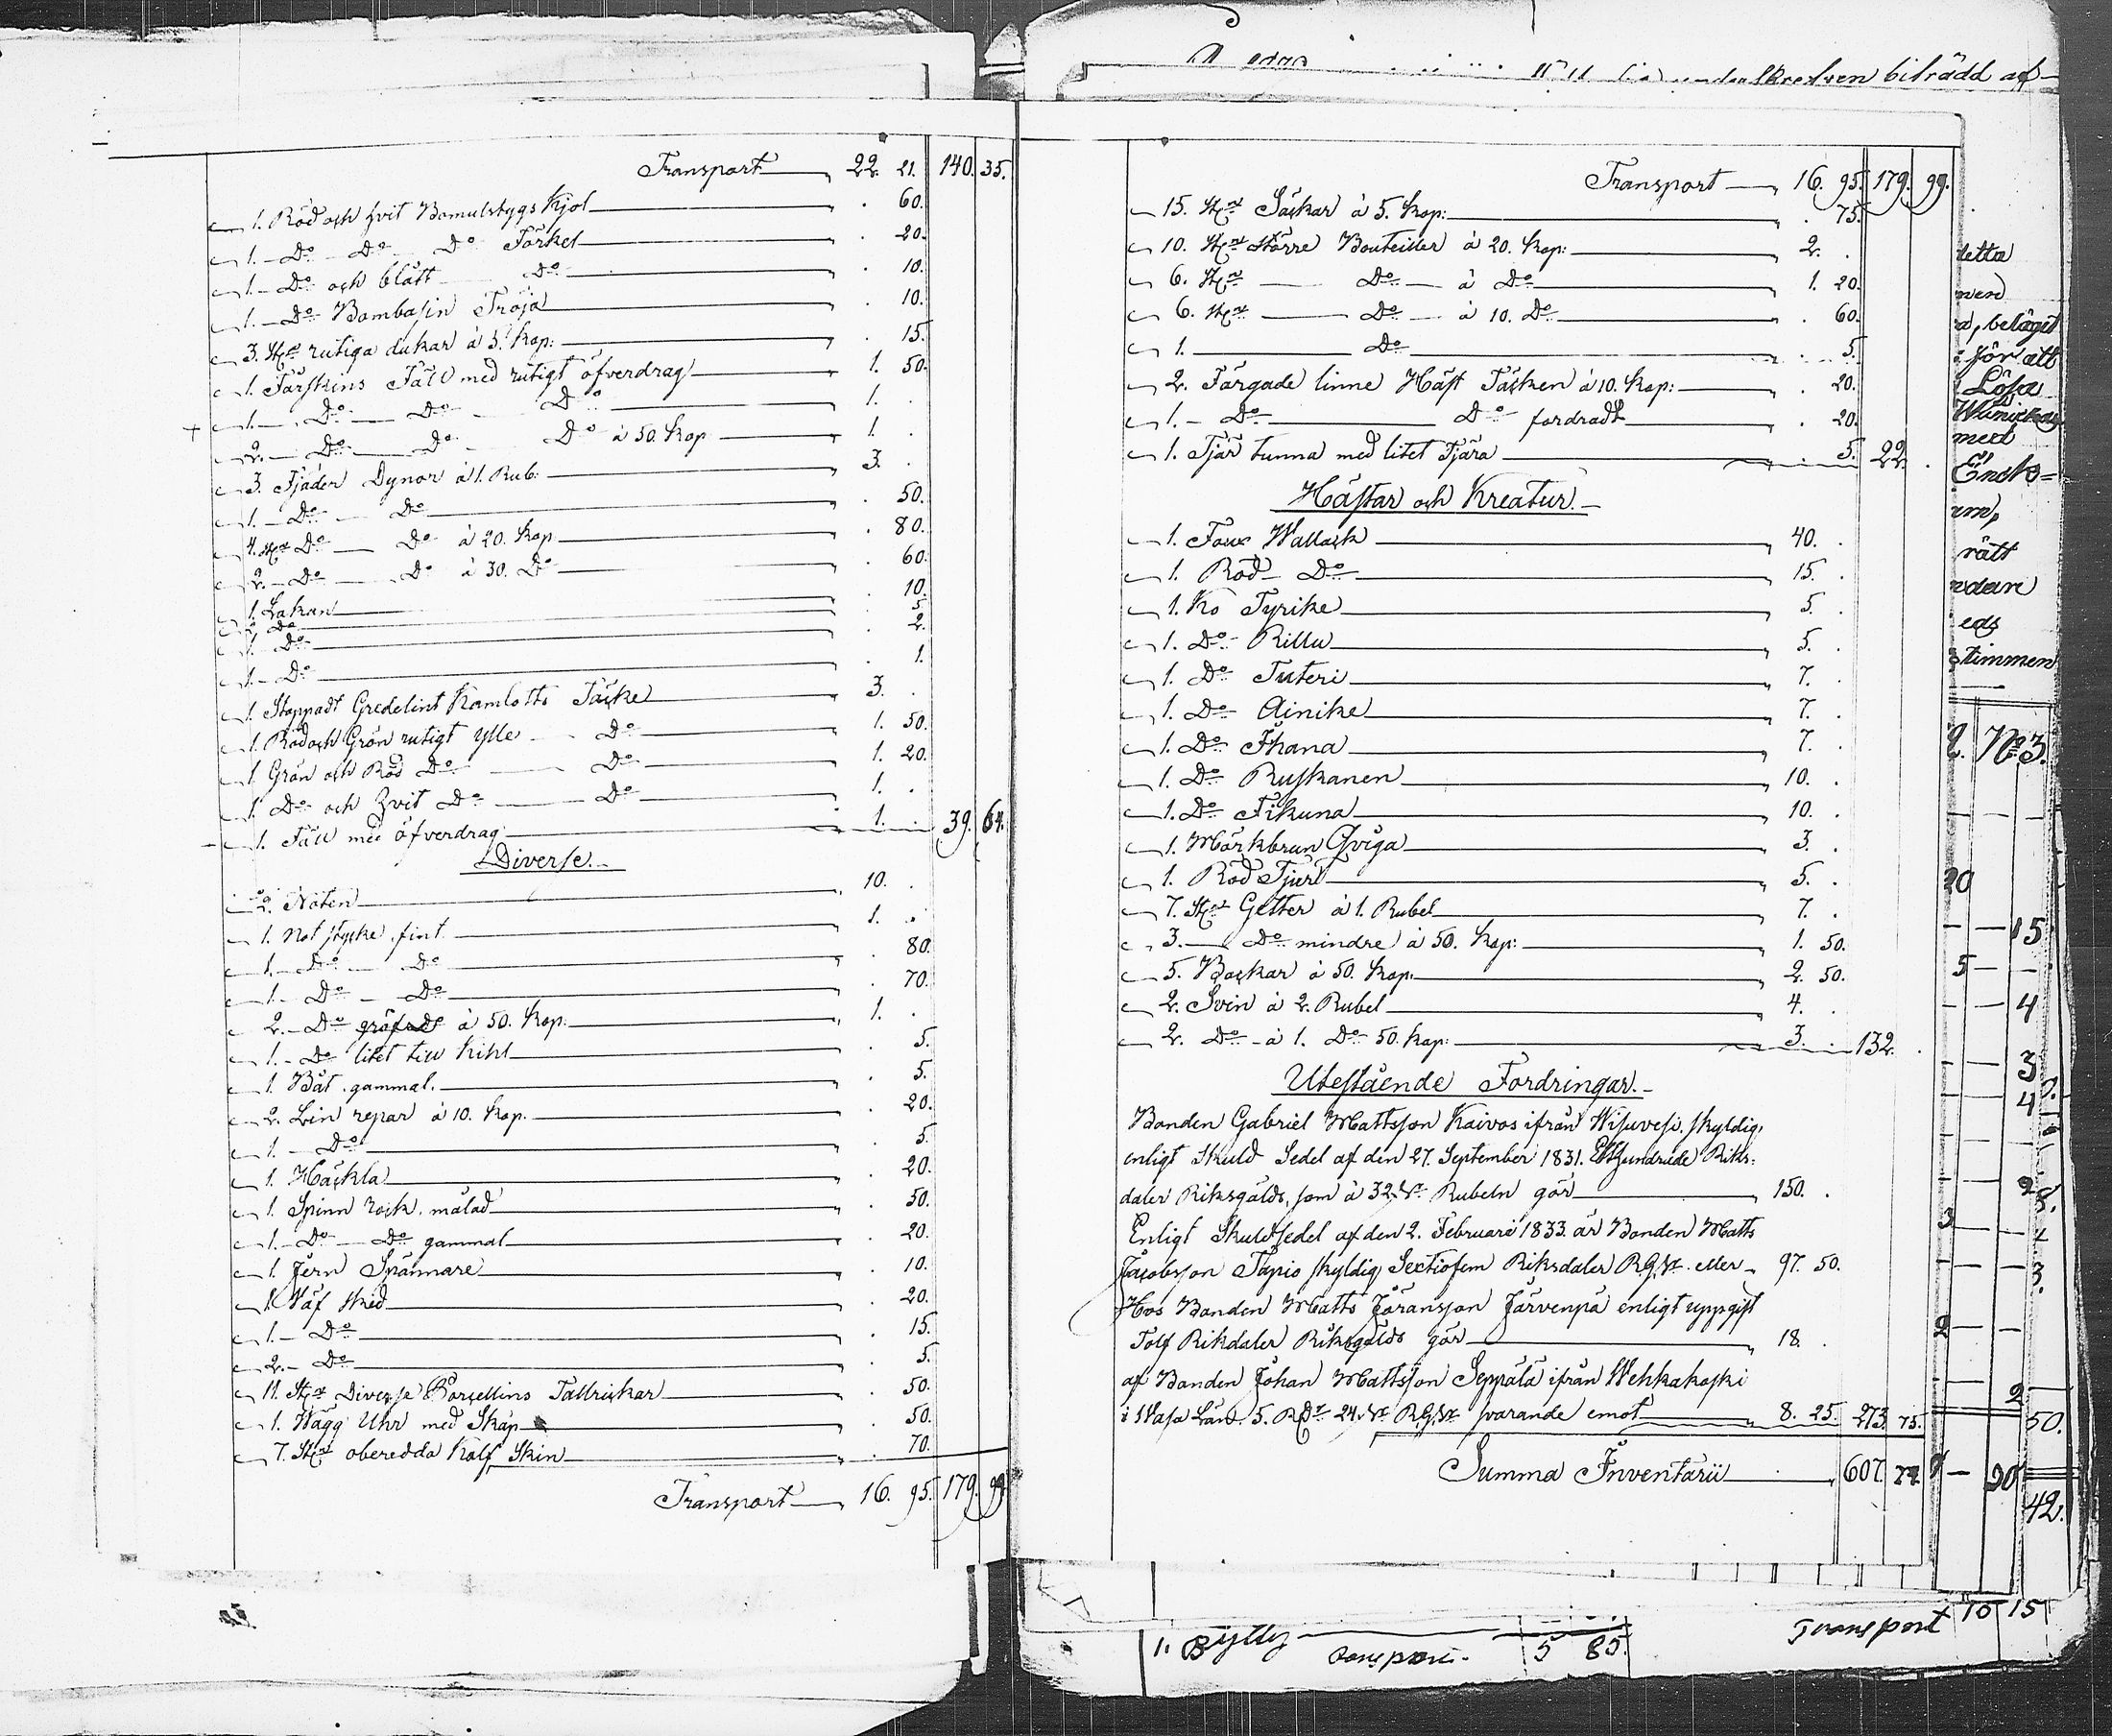 Transport 22. 21. 140. 35.
1. Röd och hvit Bomulstygs Kjol . 60.
1. Do Do Do Förkel . 20.
1. Do och blått Do . 10.
1. Do Bombasin Tröja . 10.
3. St. rutiga dukar à 5. Kop: . 15.
1. Fårskins Fäll med rutigt öfverdrag 1. 50.
1. Do Do Do 1. .
2. Do Do Do à 50. Kop 1. .
3. Fjäder Dynor à 1. Rub: 3. .
1. Do Do . 50.
4. St. Do Do à 20. Kop . 80.
2. Do Do à 30. Do . 60.
1. Lakan . 10.
Do 5.
1. Do . 2.
1. Do . 1.
1. Stoppadt Gredelint Kamlotts Täcke 3. .
1. Röd och Grön rutigt ylle Do 1. 50.
1. Grön och Röd Do Do 1. 20.
1. Do och hvit Do Do 1. .
1. Fäll med öfverdrag 1. . 39. 64.
Diverse.
2. Nöten 10. .
1. Not stycke fint 1. .
1. Do Do . 80.
1. Do Do . 70.
2. Do à 50. Kop. 1. .
1. Do litet till Kihl . 5.
1. Båt gammal. . 5.
2. Lin repar à 10. Kop. . 20.
1. Do . 5.
1. Häckla . 20.
1. Spinn rock målad . 50.
1. Do Do gammal . 20.
1. Jern Spännare . 10.
1. Väf sked . 20.
1. Do . 15.
2. Do . 5.
11. St. Diverse Porcellins Tallrickar . 50.
1. Vägg Uhr med Skåp . 50.
7. St. oberedda Kalf Skin . 70.
Transport 16. 95. 179. 99.
biträdd af
Transport 16. 95. 179. 99.
15. St. Säckar à 5. Kop: . 75.
10. St. större Bouteiller à 20. Kop: 2. .
6. St. Do à Do 1. 20.
6. St. Do à 10. Do . 60.
1. Do . 5.
2. Färgade linne Häst Täcken à 10. Kop: . 20.
1. Do Do fordradt . 20.
1. Tjär tunna med litet Tjära . 5. 22. .
Hästar och Kreatur.
1. Wallack 40. .
1. Röd Do 15. .
1. Ko Tyrike 5. .
1. Do Rillu 5. .
1. Do Tuteri 7. .
1. Do Ainike 7. .
1. Do Ihana 7. .
1. Do Ruskanen 10. .
1. Do Tikuna 10. .
1. Mörkbrun Qviga 3. .
1. Röd Tjur 5. .
7. St. Getter à 1. Rubel 7. .
3. Do mindre à 50. Kop: 1. 50.
5. Bockar à 50. Kop. 2. 50.
2. Svin à 2. Rubel 4. .
2. Do à 1. Do 50. Kop: 3. . 132. .
Utestående Fordringar.
Bonden Gabriel Mattsson Kaivos ifrån Wisuvesi skyldig,
enligt Skuld Sedel af den 27. September 1831. Etthundrade Riks-
daler Riksgälds, som à 32. Rubeln gör 150. .
Enligt Skuldsedel af den 2. Februarii 1833 är Bonden Matts
Jacobsson Tapio skyldig Sextiofem Riksdaler eller 97. 50.
Hos Bonden Matts Jöransson Järvenpä enligt uppgift
Tolf Rikdaler Riksgälds gör 18. .
af Bonden Johan Mattsson Seppälä ifrån Wehkakoski
i Wasa Län. 5. 24. svarande emot 8. 25. 273. 75.
Summa Inventarii 607. 74.
detta
beläget
för att
Lösa
med
rätt
stimmen
No 3.
20
15
5
4
3
4
2
8.
3
3.
2
2
50.
90
42.
1. Bytty
5 85.
Transport 10 15